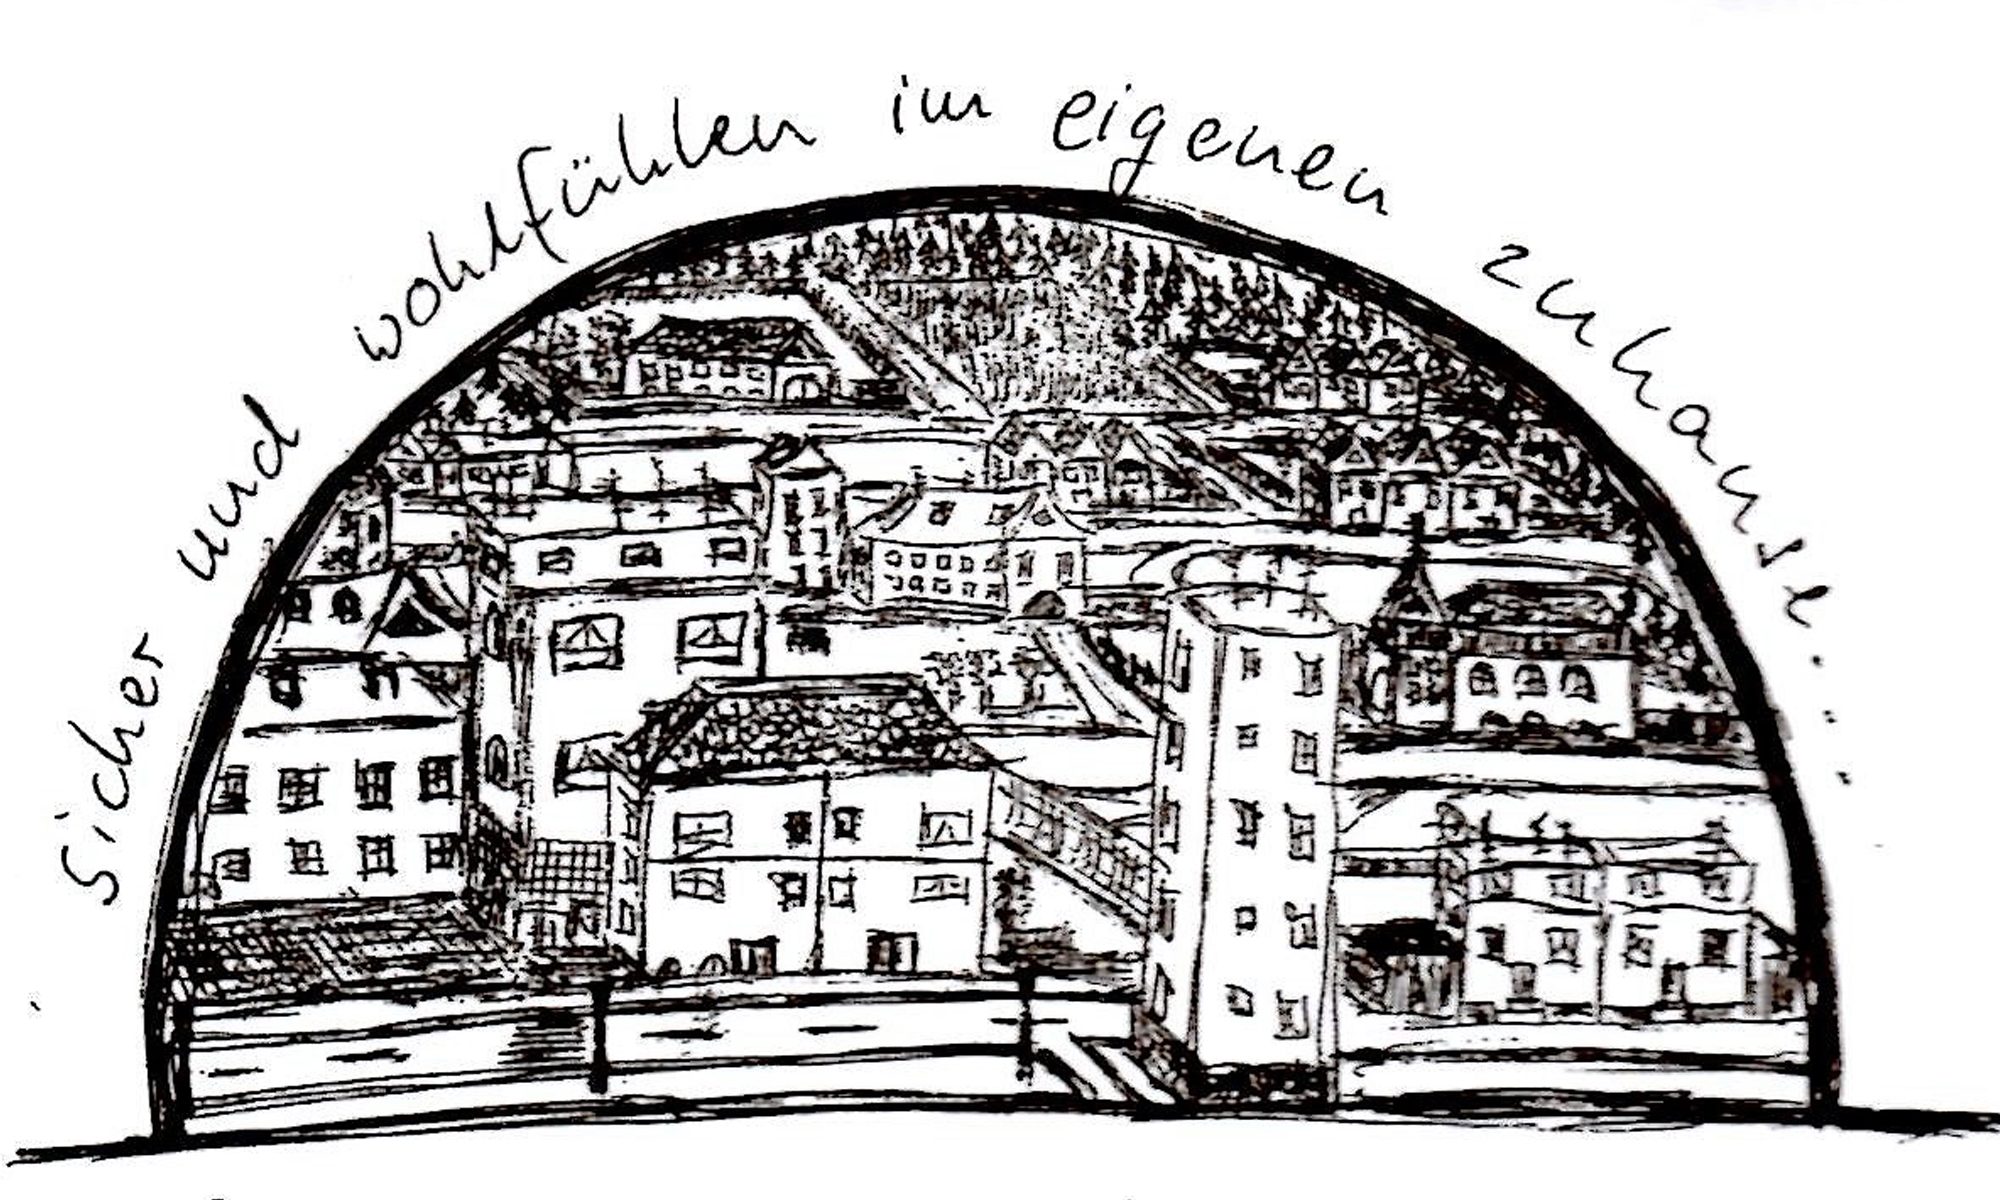 sicher und wohlfühlen im eigenen zuhause.....